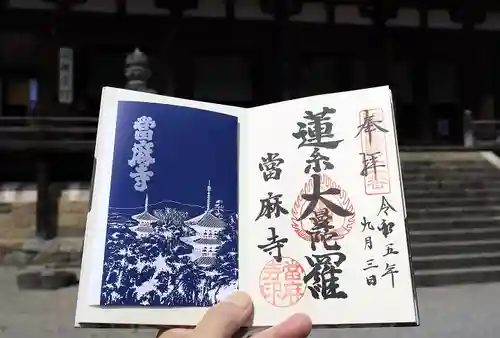 當麻寺
奉拝
令和五年
九月三日
蓮糸大曼陀羅
當麻寺
當麻
寺印